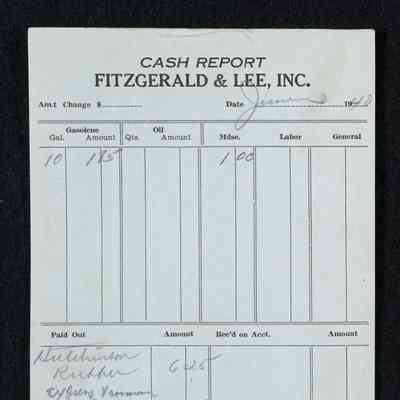 CASH REPORT
FITZGERALD & LEE, INC.
Amt Change $ Date June 1940
Gasolene Oil
Gal. Amount Qts. Amount Mdse. Labor General
10 185 1 00
Paid Out Amount Rec'd on Acct. Amount
Hutchinson
Rubber 6 25
Express